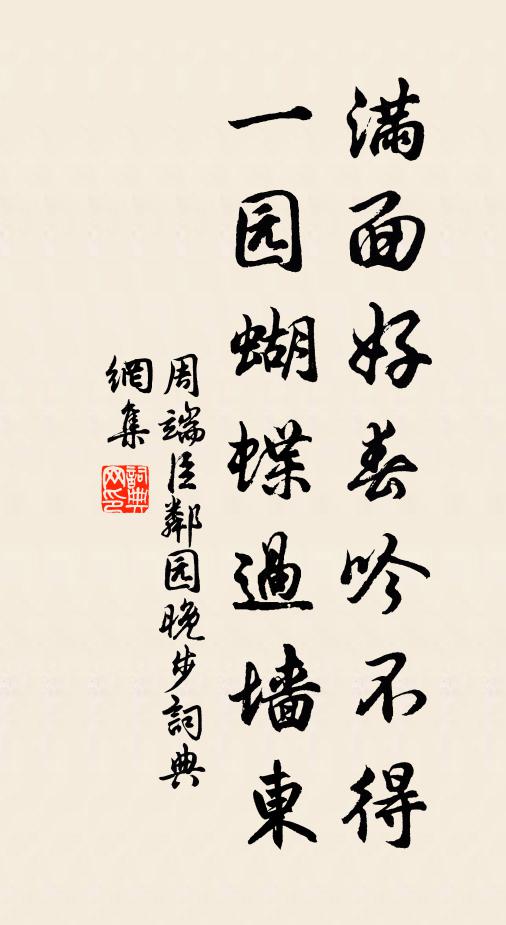 满面好春吟不得
一园蝴蝶過墙東
周端臣鄰园晚步詞典
網集
詞典
网印